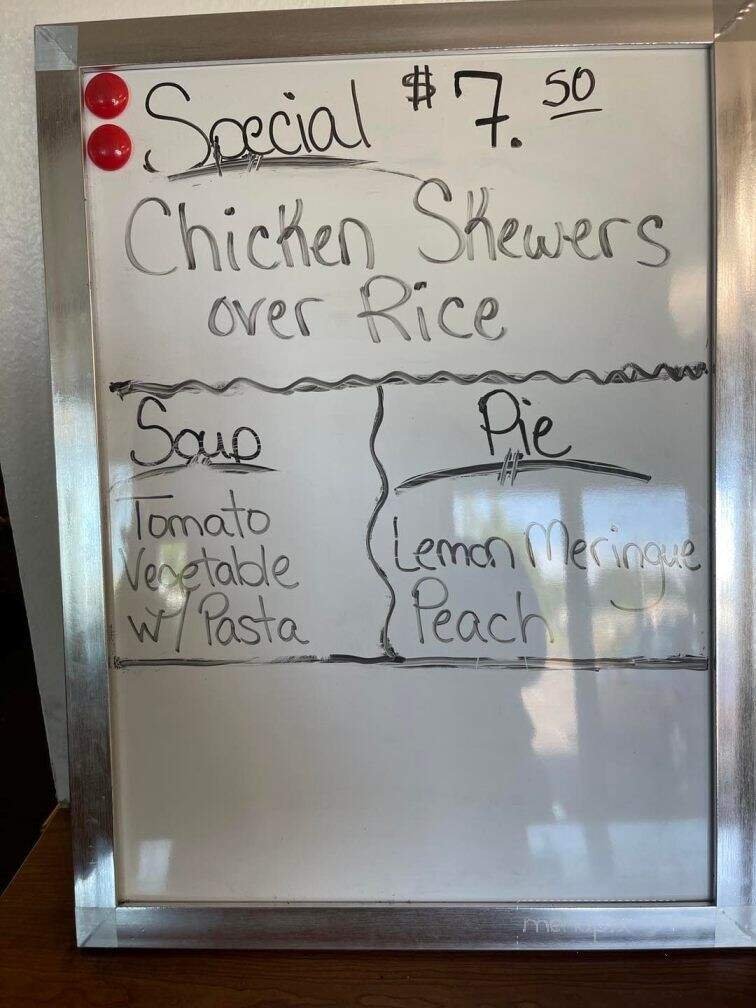 Special $7.50
Chicken Skewers
over Rice
Soup
Tomato
Vegetable
w/ Pasta
Pie
Lemon Meringue
Peach